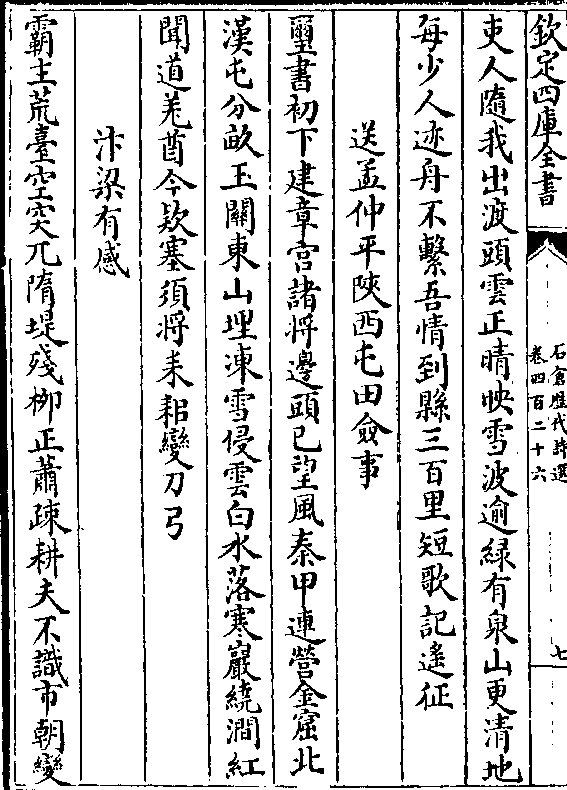 欽定四庫全書
石倉歷代詩選
卷四百二十六
七
吏人隨我出渡頭雲正晴映雪波逾緑有泉山更清地
每少人迹舟不繫吾情到縣三百里短歌記遙征
送孟仲平陜西屯田僉事
璽書初下建章宫諸將邊頭已望風秦甲連營金窟北
漢屯分畝玉關東山埋凍雪侵雲白水落寒巖繞澗紅
聞道羌酋今欵塞須將耒耜變刀弓
汴梁有感
霸主荒臺空突兀隋堤殘栁正蕭疎耕夫不識市朝變